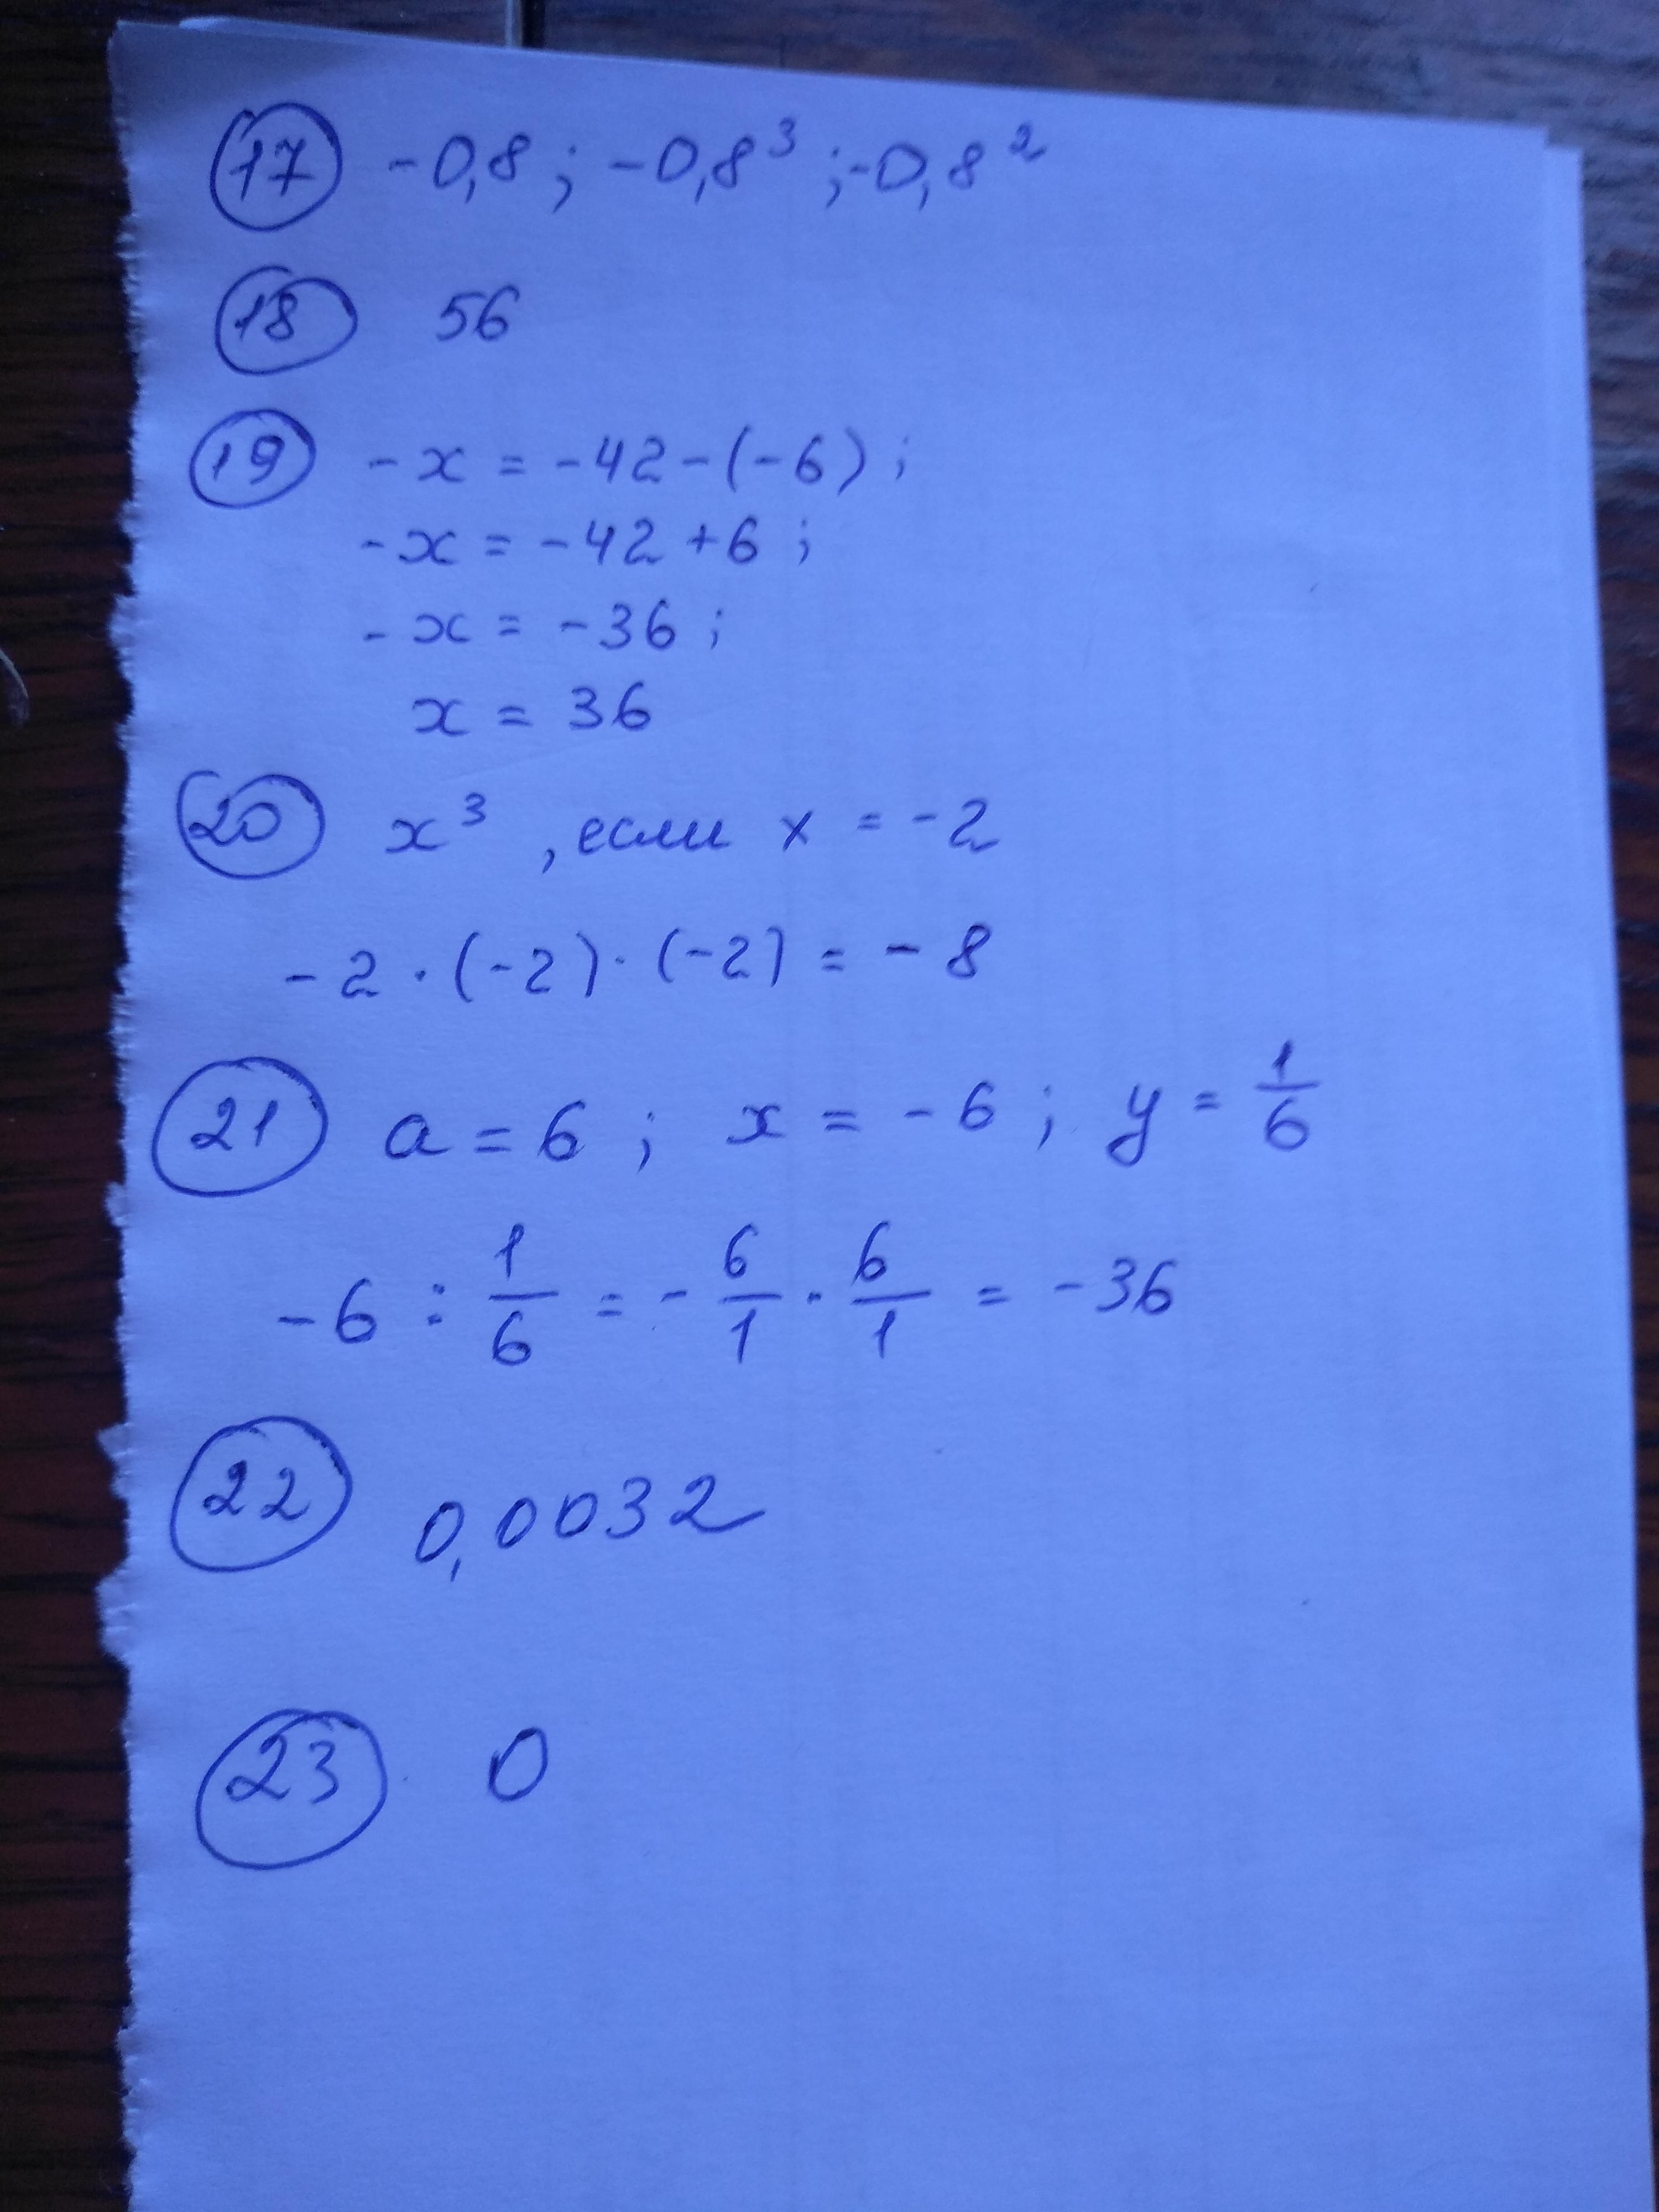 17 -0,8 ; -0,8³ ; -0,8²
18 56
19 -x = -42-(-6) ;
-x = -42 +6 ;
-x = -36 ;
x = 36
20 x³ , если x = -2
-2 · (-2) · (-2) = -8
21 a = 6 ; x = -6 ; y = 1/6
-6 : 1/6 = - 6/1 · 6/1 = -36
22 0,0032
23 0